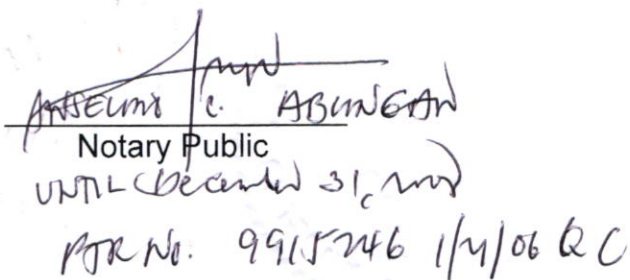 ANSELMO C. ABUNGAN
Notary Public
UNTIL December 31,
PTR No. 9915246 1/4/06 QC